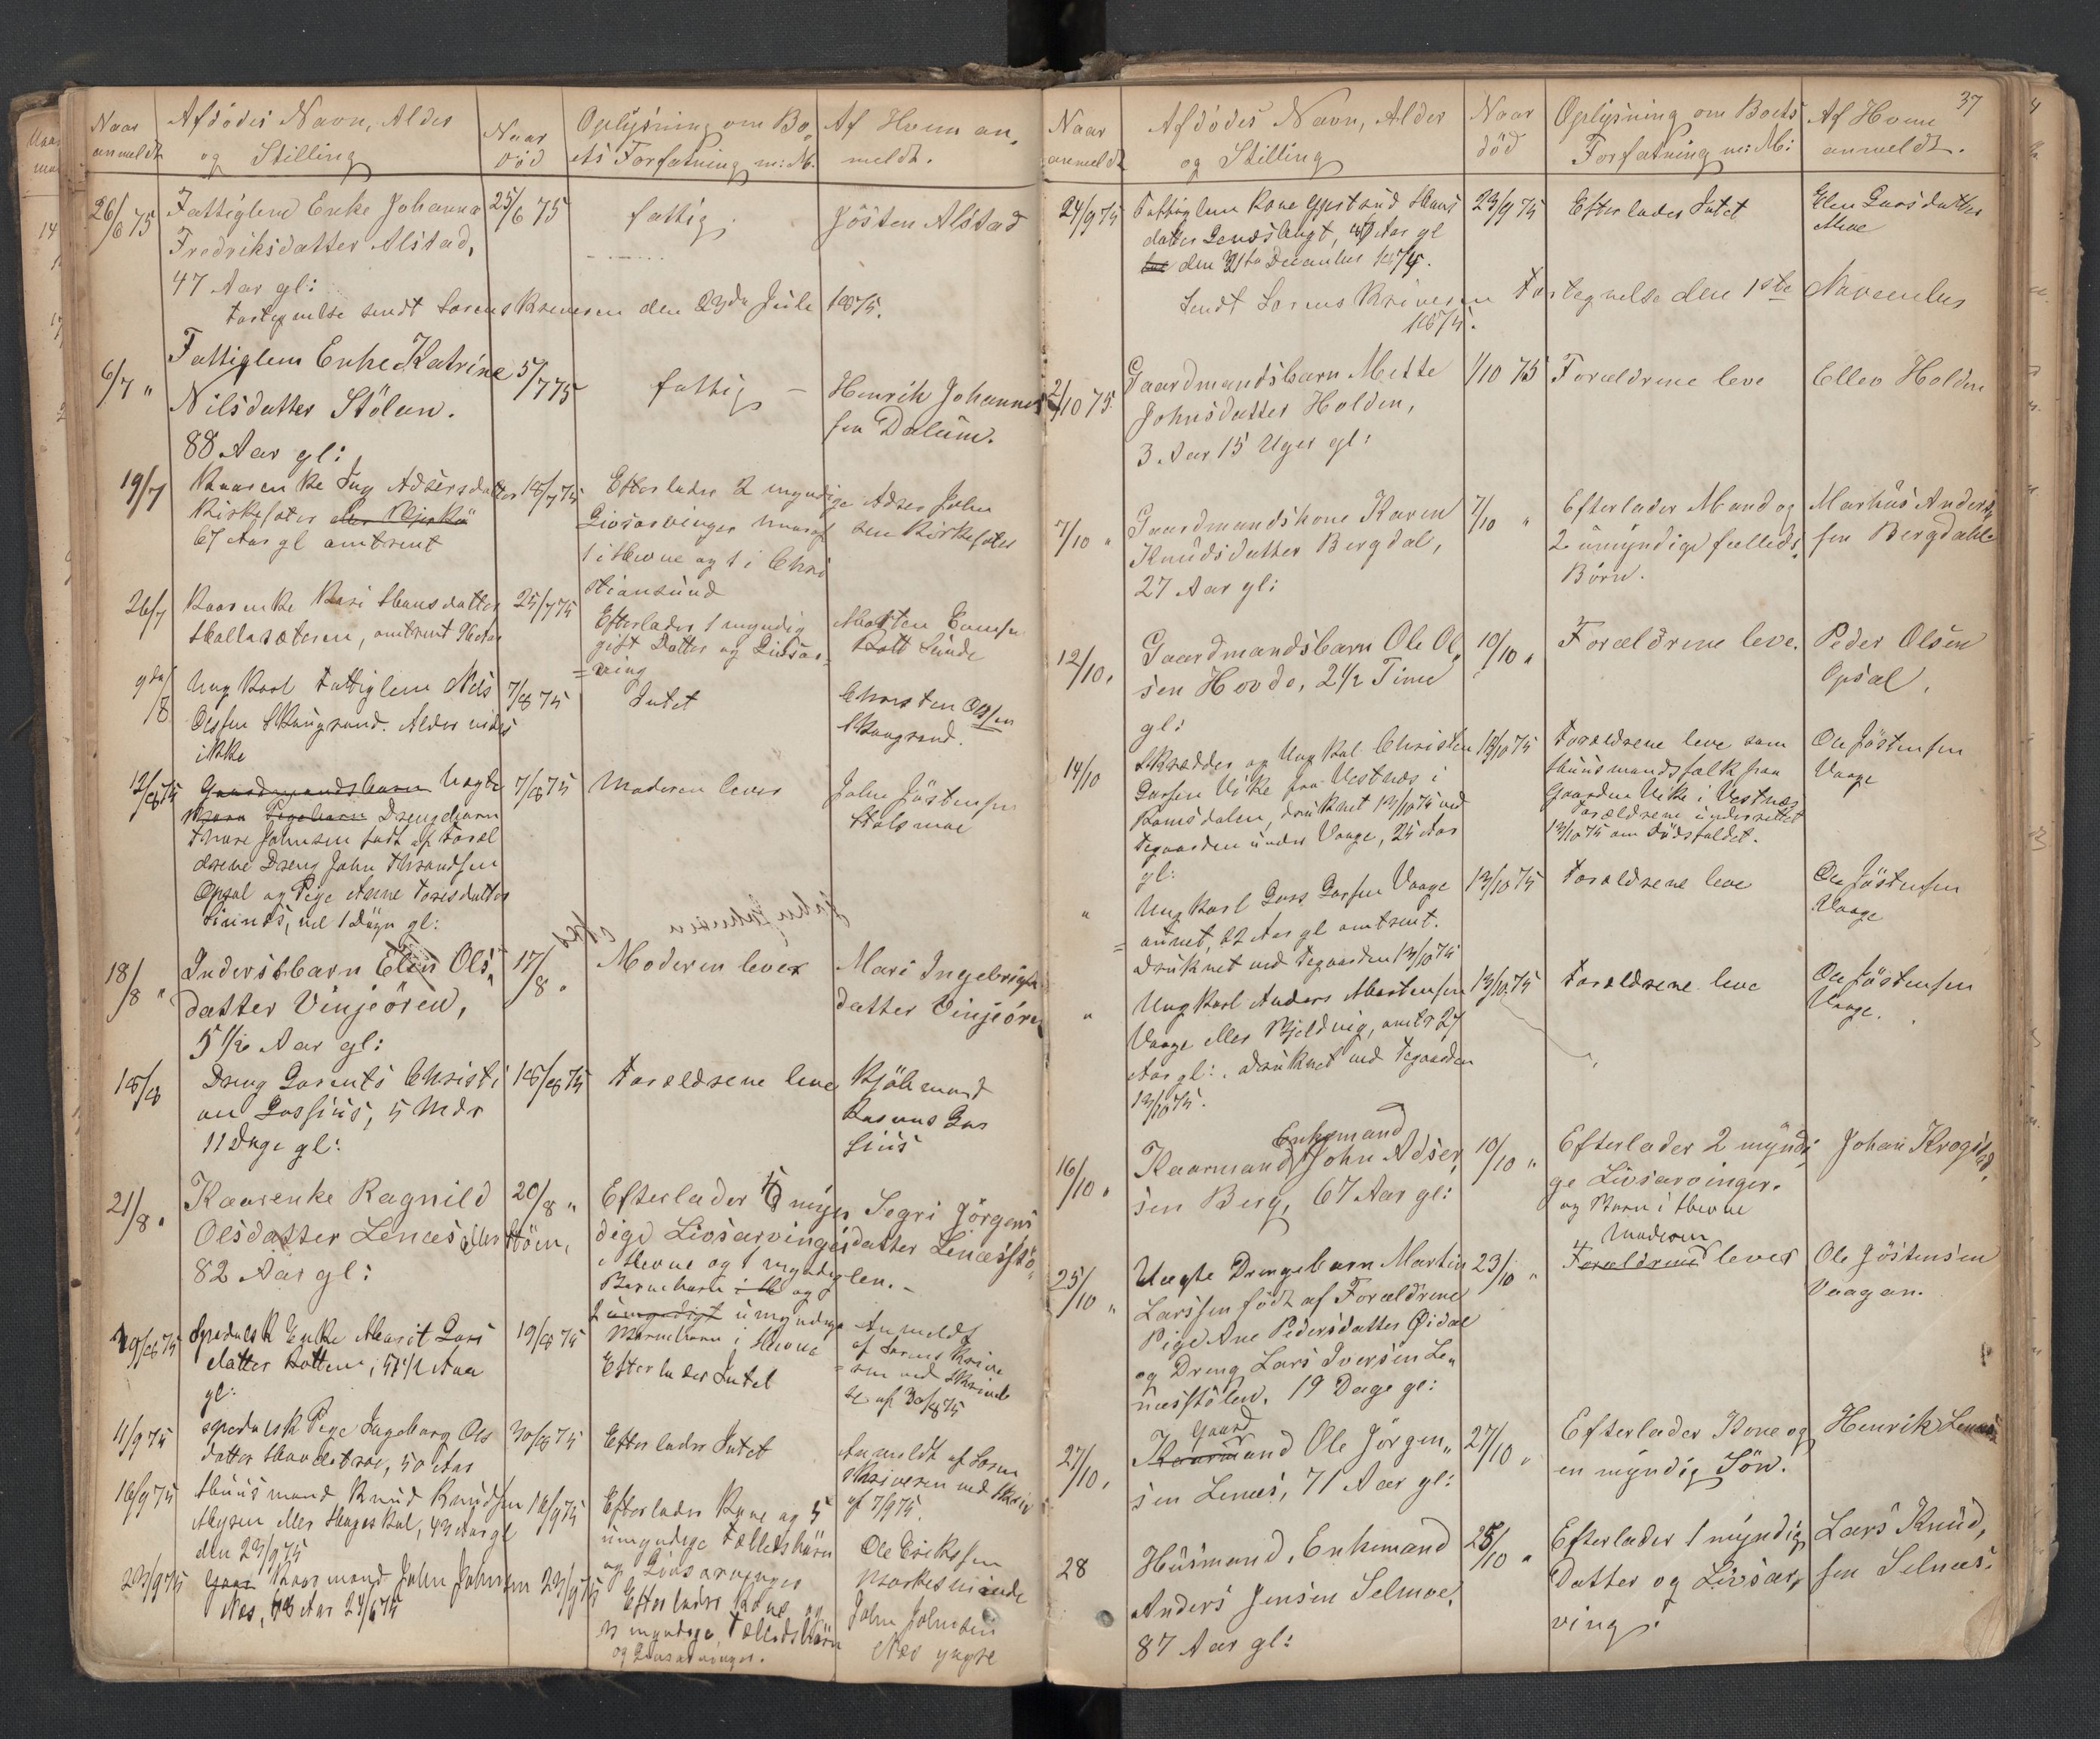 Naar
anmeldt
Afdødes Navn, Alder
og Stilling
Naar
død
Oplysning om Bo-
ets Forfatning m: M.
Af Hvem an-
meldt.
26/6 75
Fattiglem Enke Johanna
Fredriksdatter Alstad,
47 Aar gl:
25/6 75
fattig.
Jösten Alstad
Fortegnelse sendt Sorenskriveren den 23de Juli 1875.
6/7 "
Fattiglem Enke Katrine
Nilsdatter Stölan.
88 Aar gl:
5/7 75
fattig –
Henrik Johannes
sen Dalum.
19/7
Kaarenke Adsersdatter
Kirksæter
67 Aar gl omtrent
18/7 75
Efterlader 2 myndige
Livsarvinger hvoraf
1 i Hevne og 1 i Chri
stiansund
Adser John
sen Kirksæter
26/7
Kaarenke Kari Hansdatter
omtrent 96 Aar
25/7 75
Efterlader 1 myndig
gift Datter og Livsar=
=ving
Morten
Sunde
9de/8
Ung Karl Fattiglem Nils
Olssen Skaugrand. Alder vides
ikke
7/8 75
Intet
Christen Olssen
Skaugrand.
12/8 75
Gaardmandsbarn Uægte
Drengebarn
Johnsen født af Foræl
drene Dreng John Throndsen
Opsal og Pige Anne Toresdatter
1 Døgn gl:
7/8 75
Moderen lever
John Jöstensen
Stolsmoe
18/8 "
Inderstbarn Elen Ols-
datter Vinjeören,
5 1/2 Aar gl:
17/8 "
Moderen lever
Mari Ingebrigts
datter Vinjeören
18/8
Dreng Lorents Christi
an Lossius, 5 Mdr
11 Dage gl:
18/8 75
Forældrene leve
Kjöbmand
Rasmus Los
sius
21/8 "
Kaarenke Ragnild
Olsdatter Lenæs eller Stölen,
82 Aar gl:
20/8 "
Efterlader myn
dige Livsarvinger
i Hevne og 1 myndig
Barnebarn i og
2 umyndige
Barnebarn i Hevne
Segri Jörgens
datter Lenæsstö-
len. –
29/8 75
Spedalsk Enke Marit Lars
datter Rotten, 57 1/2 Aar
gl:
19/8 75
Efterlader Intet
Anmeldt
af Sorenskrive
=ren ved Skrivel
se af 30/8 75
11/9 75
spedalsk Pige Ingeborg Ols
datter 50 Aar
30/8 75
Efterlader Intet
Anmeldt af Soren
skriveren ved Skriv
af 7/9 75.
16/9 75
Huusmand Knud Knudsen
Myren eller 43 Aar gl
den 23/9 75
16/9 75
Efterlader Kone og 5
umyndige Fællesbörn
og Livsarvinger
Ole Erikssen
23/9 75
Kaarmand John Johnsen
Næs,
23/9 75
Efterlader Kone og
myndige Fællesbörn
og Livsarvinger.
John Johnsen
Næs yngre
37
Naar
anmeldt
Afdødes Navn, Alder
og Stilling
Naar
död
Oplysning om Boets
Forfatning m: M:
Af Hvem
anmeldt.
24/9 75
Fattiglem Kone Hans
datter Aar gl
den 31te December 1874.
23/9 75
Efterlader Intet
Elen Larsdatter
Moe
Sendt Sorenskriveren Fortegnelse den 1ste November
1875.
2/10 75.
Gaardmandsbarn Mette
Johnsdatter Holden,
3 Aar 15 Uger gl:
1/10 75
Forældrene leve
Ellev Holden
7/10 "
Gaardmandskone Karen
Knudsdatter Bergdal,
27 Aar gl:
7/10 "
Efterlader Mand og
2 umyndige fælleds
Börn.
Markus Anders
sen Bergdahl
12/10 "
Gaardmandsbarn Ole Ol-
sen Hovde, 2 1/2 Time
gl:
10/10 "
Forældrene leve.
Peder Olsen
Opsal.
14/10
Skrædder og Ung Karl Christen
Larsen Vike fra Vestnæs i
Romsdalen, druknet 13/10 75 ved
Tegaarden under Vaage, 25 Aar
gl:
13/10 75
Forældrene leve som
Huusmandsfolk paa
Gaarden Vike i Vestnæs
Forældrene underrettet
13/10 75 om Dödsfaldet.
Ole Jöstensen
Vaage
"
Ung Karl Lars Larsen Vaage
22 Aar gl omtrent.
druknet ved Tegaarden 13/10 75
13/10 75
Forældrene leve
Ole Jöstensen
Vaage
"
Ung Karl Anders Mortensen
Vaage eller Mjeldvig, omtr 27
Aar gl:. druknet ved Tegaarden
13/10 75.
13/10 75
Forældrene leve
Ole Jöstensen
Vaage.
16/10 "
Enkemand
Kaarmand John Adser-
sen Berg, 67 Aar gl:
10/10 "
Efterlader 2 myndi-
ge Livsarvinger.
og Barn i Hevne
Johan Krogst
25/10 "
Uægte Drengebarn Martin
Larssen født af Forældrene
Pige Ane Pedersdatter Öidal
og Dreng Lars Iversen Le-
næsstölen. 19 Dage gl:
23/10 "
Moderen
Forældrene lever
Ole Jöstensen
Vaagan.
27/10 "
Gaard
Kaarmand Ole Jörgen-
sen Lenæs, 71 Aar gl:
27/10 "
Efterlader Kone og
en myndig Sön.
Henrik Lenæs
28
Husmand, Enkemand
Anders Jensen Selnæs,
87 Aar gl:
25/10 "
Efterlader 1 myndig
Datter og Livsar-
ving.
Lars Knud-
sen Selnæs.